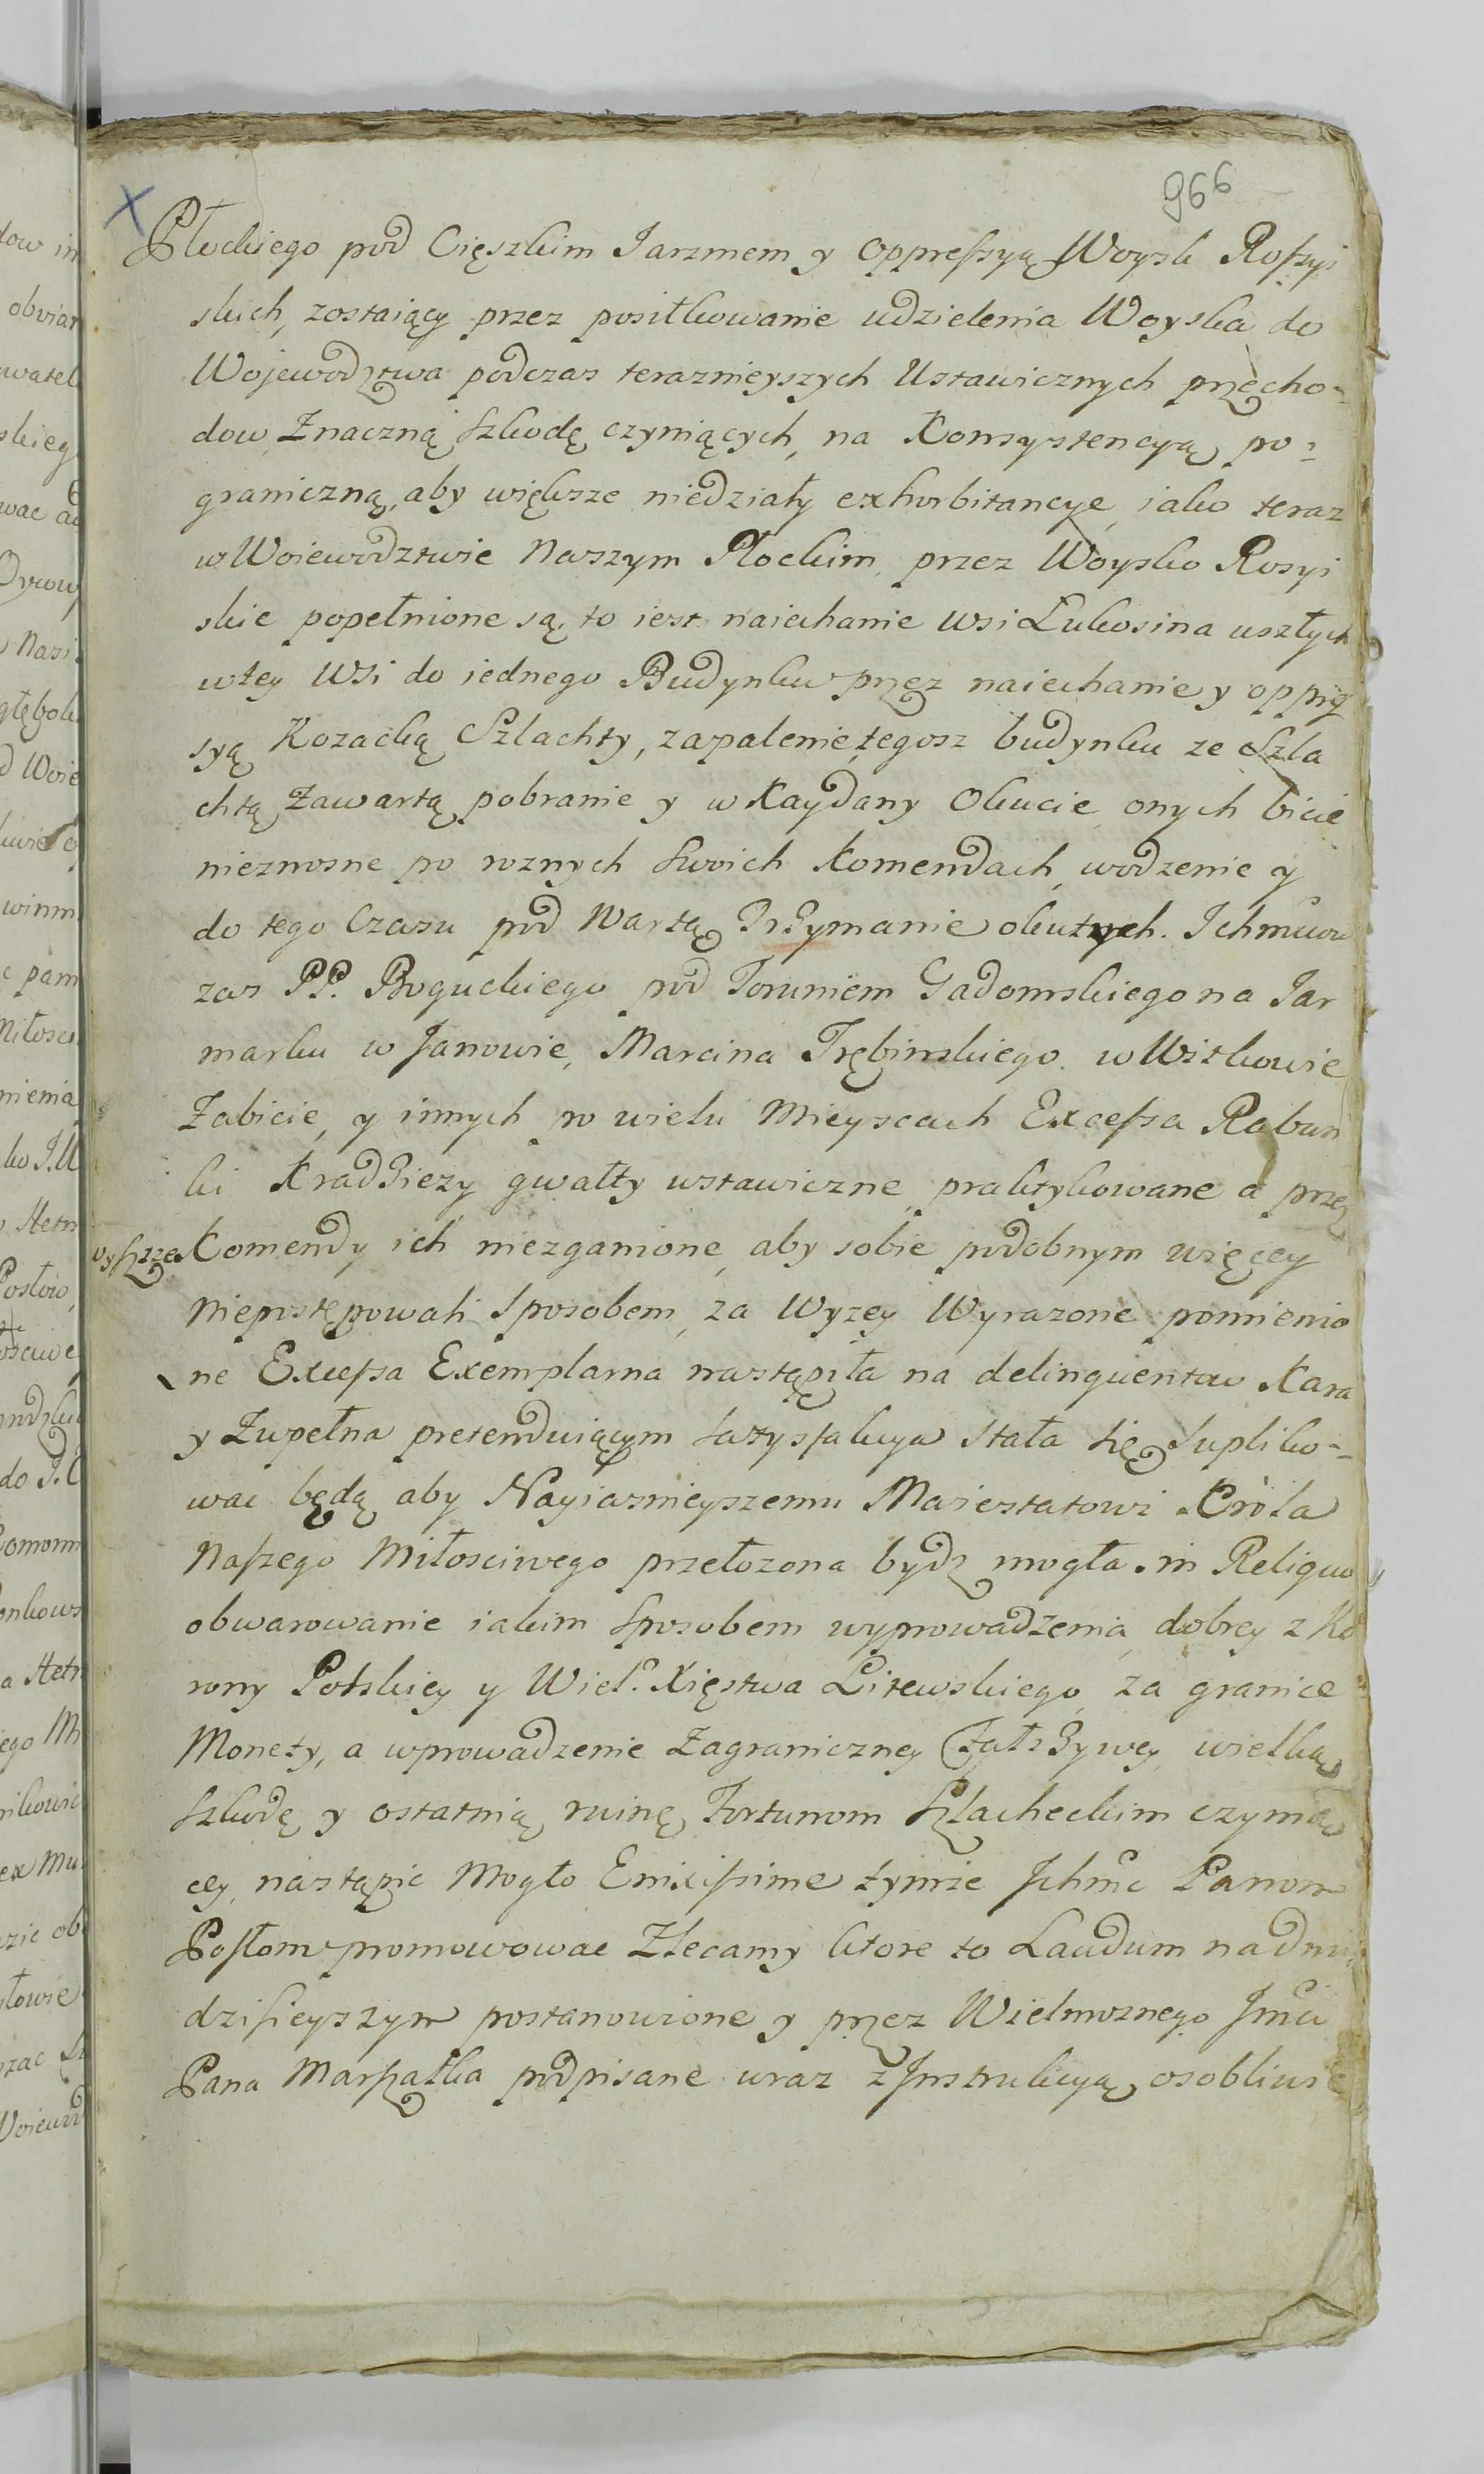 966
Płockiego pod Cięszkim Jarzmem y oppreſsyą Woysk Roſsyi
skich, zostaiący przez posiłkowanie udzielenia Woyska do
Wojewodztwa podczas teraznieyszych Ustawicznych przecho-
dow, Znaczną szkodę czyniących, na Konsystencyą po-
graniczną, aby większe niedziały exhorbitancye, iako teraz
w Woiewodztwie Naszym Płockim, przez Woysko Rosyi
skie popełnione są, to iest naiechanie Wsi Lukosina uszłych
w tey Wsi do iednego Budynku przez naiechanie y oppre
syą Kozacką Szlachty, zapalenie tegosz budynku ze Szla
chtą Zawartą pobranie y w Kaydany Okucie, onych bicie
nieznosne po roznych swoich Komendach, wodzenie y
do tego Czasu pod Wartą Trzymanie okutych. Ichmciow
zas PP. Boguckiego pod Toruniem Gadomskiego na Jar
marku w Janowie, Marcina Trębinskiego w Witkowie
Zabicie, y innych po wielu Mieyscach Exceſsa Rabun
ki Kradzieży gwałty ustawiczne praktykowane a przez
wyſzsze Komendy ich niezganione, aby sobie podobnym więcey
Niepostępowali sposobem, za Wyzey Wyrazone pomienio
ne Exceſsa Exemplarna nastąpiła na delinquentow Kara
y Zupełna pretenduiącym satysfakcya stała się Supliko-
wac będą aby Nayiasnieyszemu Maiestatowi Króla
Naſzego Miłosciwego przełozona bydz mogła. in Reliquo
obwarowanie iakim sposobem wyprowadzenia dobrey z Ko
rony Polskiey y Wiel. Xięstwa Litewskiego, za granice
Monety, a wprowadzenie Zagraniczney Fałszywey wielką
szkodę y ostatnią ruinę Fortunom szlacheckim czynią
cey, nastąpic Mogło Enixiſsime tymże Ichmc Panom
Poſłom promowowac Zlecamy ktore to Laudum na dniu
dziſieyszym postanowione y przez Wielmoznego Jmci
Pana Marſzałka podpisane wraz z Instrukcyą osobliwie